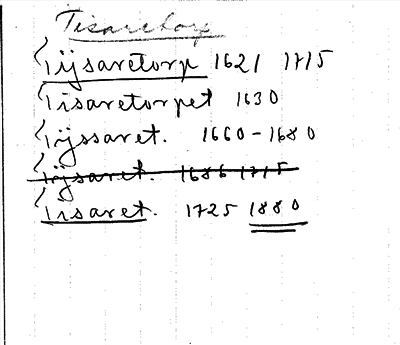 Tisaretorp
Tijsaretorp 1621 1715
Tisaretorpet 1630
Tijssaret. 1660-1680
Tijsaret. 1686 1715
Tisaret. 1725 1880